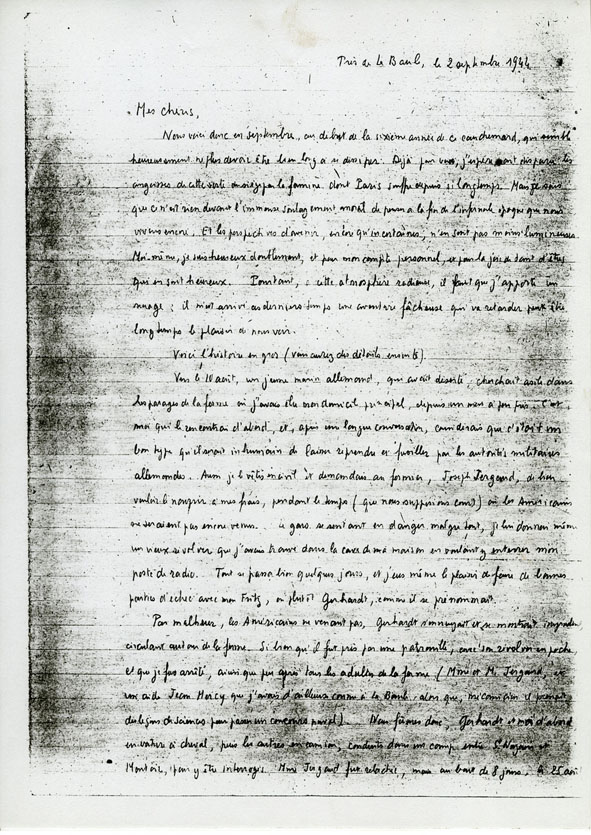 Près de la Baule, le 2 septembre 1944
Mes chéris,
Nous voici donc en septembre, au début de la sixième année de ce cauchemar, qui semble
heureusement ne plus devoir être bien long à se dissiper. Déjà pour vous, j'espère, ont disparu les
angoisses de cette sorte de par la famine, dont Paris souffre depuis si longtemps. Mais je sais
que ce n'est rien devant l'immense soulagement moral de penser à la fin de l'infernale époque que nous
vivons encore. Et les perspectives d'avenir, encore qu'incertaines, n'en sont pas moins lumineuses.
Moi-même, je suis heureux doublement, et pour mon compte personnel, et par la joie de tant d'êtres
qui en sont heureux. Pourtant, à cette atmosphère radieuse, il faut que j'apporte un
nuage ; il m'est arrivé ces derniers temps une aventure fâcheuse qui va retarder peut être
longtemps le plaisir de nous voir.
Voici l'histoire en gros (vous aurez des détails ensuite).
Vers le 10 août, un jeune marin allemand, qui avait déserté, cherchait asile dans
les parages de la ferme où j'avais élu mon domicile principal, depuis un mois à peu près. C'est
moi qui le rencontrai d'abord, et, après une longue conversation, considérais que c'était un
bon type qu'il serait inhumain de laisser reprendre et fusiller par les autorités militaires
allemandes. Aussi je le vêtis en civil et demandais au fermier, Joseph Jergaud, de bien
vouloir le nourrir à mes frais, pendant le temps (que nous supposions court) où les Américains
ne seraient pas encore venus. Le gars se sentant en danger malgré tout, je lui donnai même
un vieux révolver que j'avais trouvé dans la cave de ma maison en voulant y enterrer mon
poste de radio. Tout se passa bien quelques jours, et j'eus même le plaisir de faire de bonnes
parties d'échec avec mon Fritz, ou plutôt Gerhardt, comme il se prénommait.
Par malheur, les Américains ne venant pas, Gerhardt s'ennuyait et se montrait imprudent
circulant autour de la ferme. Si bien qu'il fut pris par une patrouille, avec son révolver en poche,
et que je fus arrêté, ainsi que peu après tous les adultes de la ferme (Mme et M. Jergaud, et
un aide Jean Mercy que j'avais d'ailleurs connu à la Baule alors que, mécanicien il prenait
des leçons de sciences pour passer un concours naval). Nous fûmes donc, Gerhardt et moi d'abord
en voiture à cheval, puis les autres en camion, conduits dans un camp entre St Nazaire et
Montoir, pour y être interrogés. Mme Jergaud fut relâchée, mais au bout de 8 jours, le 25 août